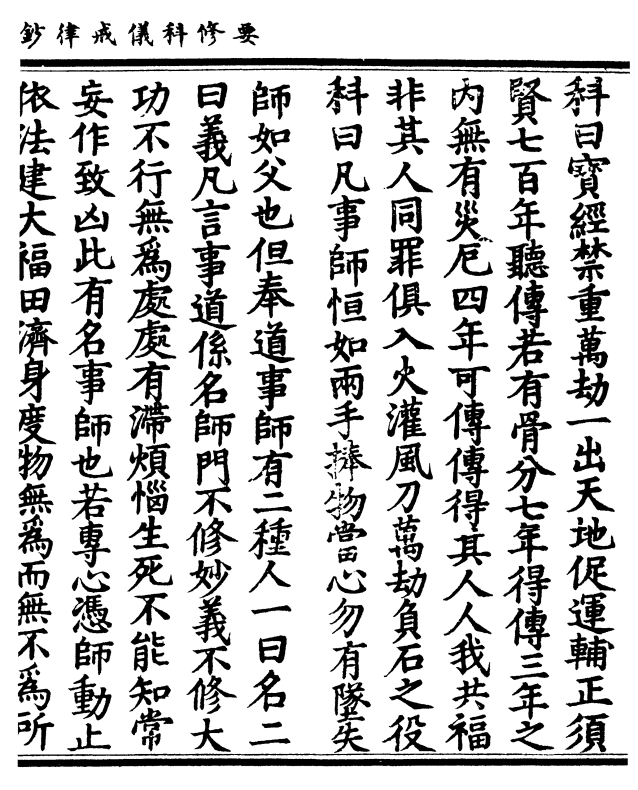 要修科儀戒律鈔
科曰寶經禁重萬劫一出天地促運輔正須
賢七百年聽傳若有骨分七年得傳三年之
內無有災厄四年可傳傳得其人人我共福
非其人同罪俱入火灌風刀萬劫負石之役
科曰凡事師恒如兩手捧物當心勿有墜失
師如父也但奉道事師有二種人一曰名二
曰義凡言事道係名師門不修妙義不修大
功不行無爲處處有滯煩惱生死不能知常
妄作致凶此有名事師也若專心憑師動止
依法建大福田濟身度物無爲而無不爲所